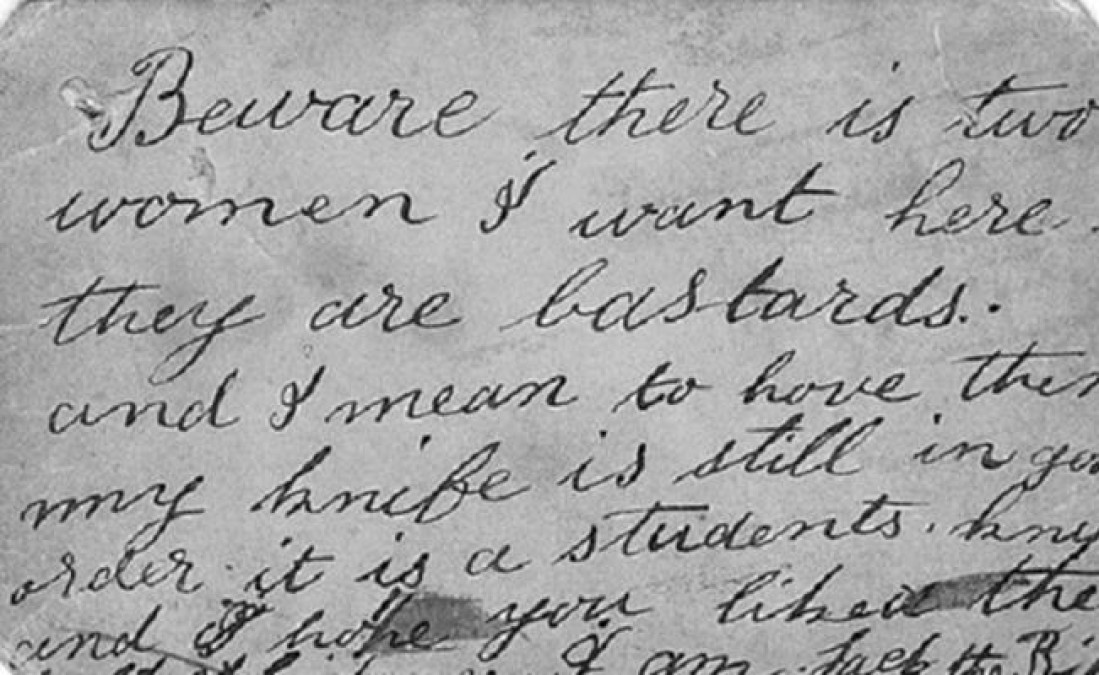 Beware there is two
women I want here.
they are bastards.
and I mean to have them
my knife is still in goo
order it is a students. kny
and I hope you liked the
I am Jack the Ri